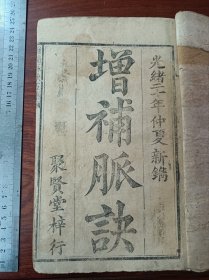 光緒二十年仲夏新鐫
增補脈訣
聚賢堂梓行